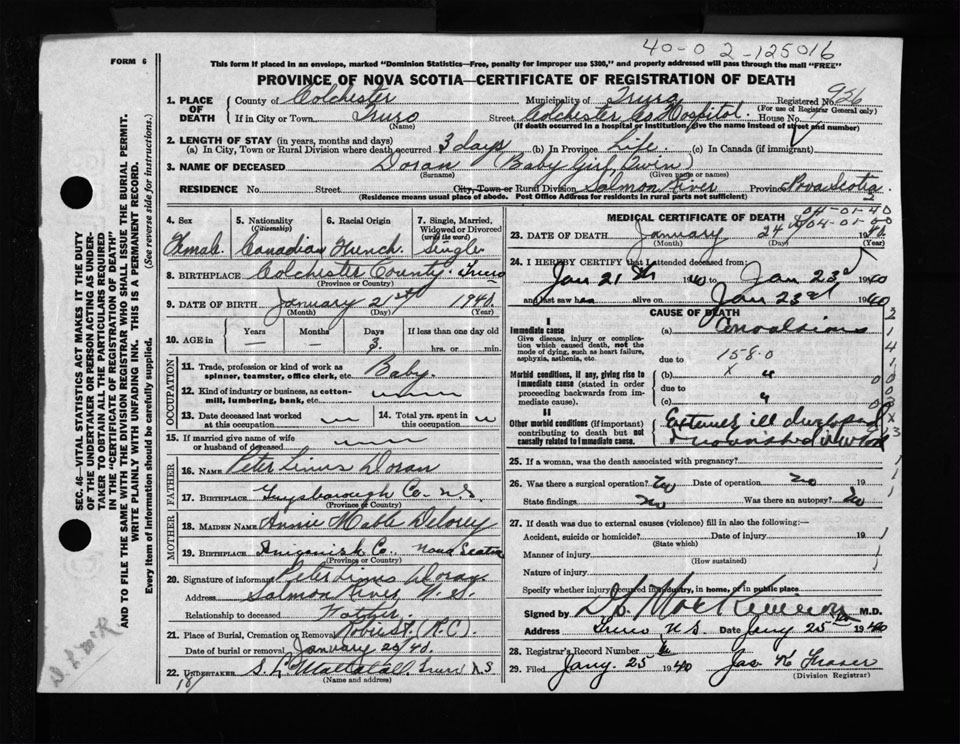 40-02-125016
FORM 6
This form if placed in an envelope, marked "Dominion Statistics—Free, penalty for improper use $300," and properly addressed will pass through the mail "FREE"
PROVINCE OF NOVA SCOTIA—CERTIFICATE OF REGISTRATION OF DEATH
1. PLACE OF DEATH
County of Colchester Municipality of Truro Registered No. 956
(For use of Registrar General only)
If in City or Town Truro Street Colchester Co Hospital. House No.
(Name) (If death occurred in a hospital or institution, give the name instead of street and number)
2. LENGTH OF STAY (in years, months and days)
(a) In City, Town or Rural Division where death occurred 3 days (b) In Province Life. (c) In Canada (if immigrant)
3. NAME OF DECEASED Doran (Baby Girl, Twin)
(Surname) (Given name or names)
RESIDENCE No. Street City, Town or Rural Division Salmon River Province Nova Scotia
(Residence means usual place of abode. Post Office Address for residents in rural parts not sufficient)
4. Sex Female
5. Nationality (Citizenship) Canadian
6. Racial Origin French.
7. Single, Married, Widowed or Divorced (write the word) Single
8. BIRTHPLACE Colchester County. Truro
(Province or Country)
9. DATE OF BIRTH January 21st 1940.
(Month) (Day) (Year)
10. AGE in Years Months Days If less than one day old
— — 3. hrs. or min.
OCCUPATION
11. Trade, profession or kind of work as spinner, teamster, office clerk, etc. Baby.
12. Kind of industry or business, as cotton-mill, lumbering, bank, etc.
13. Date deceased last worked at this occupation
14. Total yrs. spent in this occupation
15. If married give name of wife or husband of deceased
FATHER
16. NAME Peter Linus Doran
17. BIRTHPLACE Guysborough Co. N.S.
(Province or Country)
MOTHER
18. MAIDEN NAME Annie Mable Delorey
19. BIRTHPLACE Antigonish Co. Nova Scotia
(Province or Country)
20. Signature of informant Peter Linus Doran.
Address Salmon River N.S.
Relationship to deceased Father
21. Place of Burial, Cremation or Removal Robie St. (R.C.)
Date of burial or removal January 25/40.
22. UNDERTAKER Truro NS
(Name and address)
187
MEDICAL CERTIFICATE OF DEATH
04-01-40
04-01-40
23. DATE OF DEATH January 24 1940
(Month) (Day) (Year)
24. I HEREBY CERTIFY that I attended deceased from:
Jan 21st 1940 to Jan 23rd 1940
and last saw her alive on Jan 23rd 1940
CAUSE OF DEATH
I
Immediate cause (a) Convulsions
Give disease, injury or complication which caused death, not the mode of dying, such as heart failure, asphyxia, asthenia, etc.
due to 158.0
x
Morbid conditions, if any, giving rise to immediate cause (stated in order proceeding backwards from immediate cause).
(b) "
due to
(c) "
II
Other morbid conditions (if important) contributing to death but not causally related to immediate cause.
Extremely ill developed
& nourished
25. If a woman, was the death associated with pregnancy?
26. Was there a surgical operation? No Date of operation No 19
State findings No Was there an autopsy? No
27. If death was due to external causes (violence) fill in also the following:—
Accident, suicide or homicide? Date of injury 19
(State which)
Manner of injury
(How sustained)
Nature of injury
Specify whether injury occurred in industry, in home, or in public place
Signed by MacKinnon M.D.
Address Truro N.S. Date Jany 25th 1940
28. Registrar's Record Number
29. Filed Jany. 25 1940 Jas K Fraser
(Division Registrar)
SEC. 46—VITAL STATISTICS ACT MAKES IT THE DUTY
OF THE UNDERTAKER OR PERSON ACTING AS UNDER-
TAKER TO OBTAIN ALL THE PARTICULARS REQUIRED
IN THE "CERTIFICATE OF REGISTRATION OF DEATH"
AND TO FILE THE SAME WITH THE DIVISION REGISTRAR WHO SHALL ISSUE THE BURIAL PERMIT.
(See reverse side for instructions.)
WRITE PLAINLY WITH UNFADING INK. THIS IS A PERMANENT RECORD.
Every item of Information should be carefully supplied.